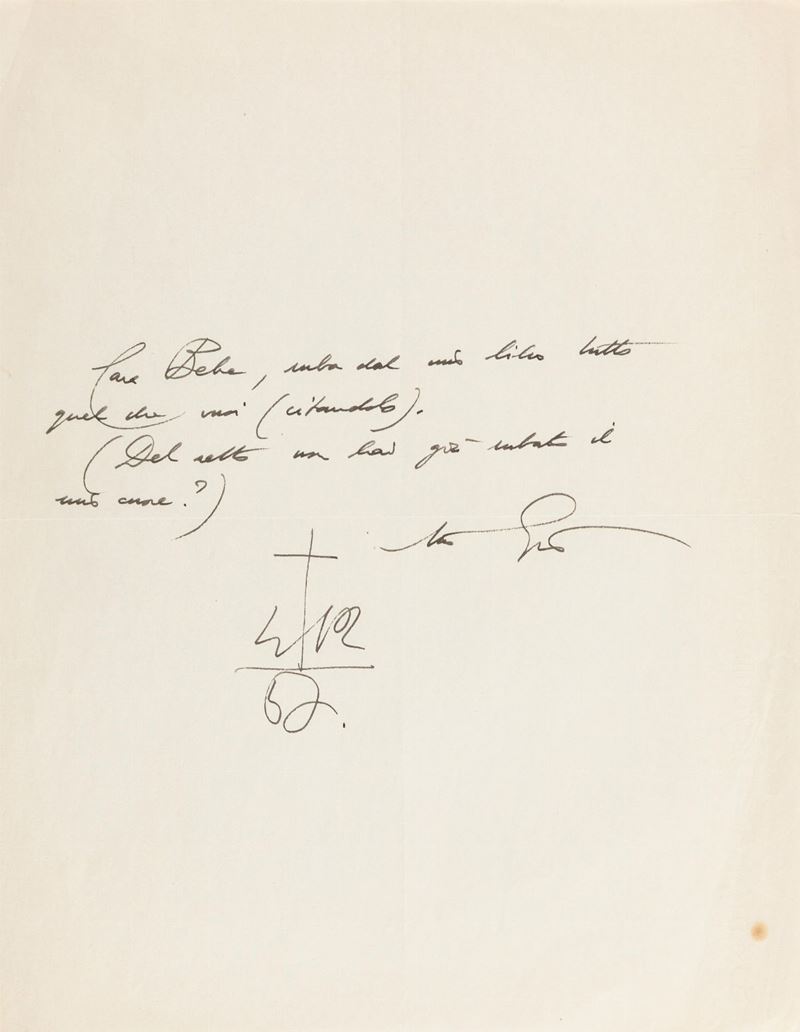 Cara Bebe, ruba dal mio libro tutto
quel che vuoi (citandolo).
(Del resto non hai già rubato il
mio cuore?)
tuo Giò
4 12
57.